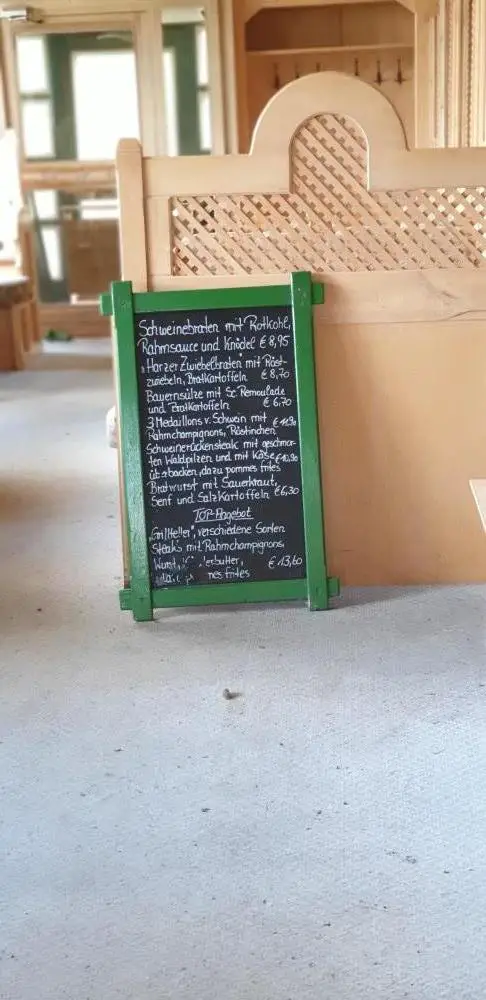 Schweinebraten mit Rotkohl,
Rahmsauce und Knödel € 8,95
"Harzer Zwiebelbraten" mit Röst-
zwiebeln, Bratkartoffeln € 8,70
Bauernsülze mit Sc. Remoulade
und Bratkartoffeln € 6,70
3 Medaillons v. Schwein mit
Rahmchampignons, Röstinchen
Schweinerückensteak mit geschmor-
ten Waldpilzen und mit Käse € 10,90
überbacken, dazu pommes frites
Bratwurst mit Sauerkraut,
Senf und Salzkartoffeln € 6,30
TOP-Angebot
"Grillteller", verschiedene Sorten
Steaks mit Rahmchampignons,
Wurst, € 13,60